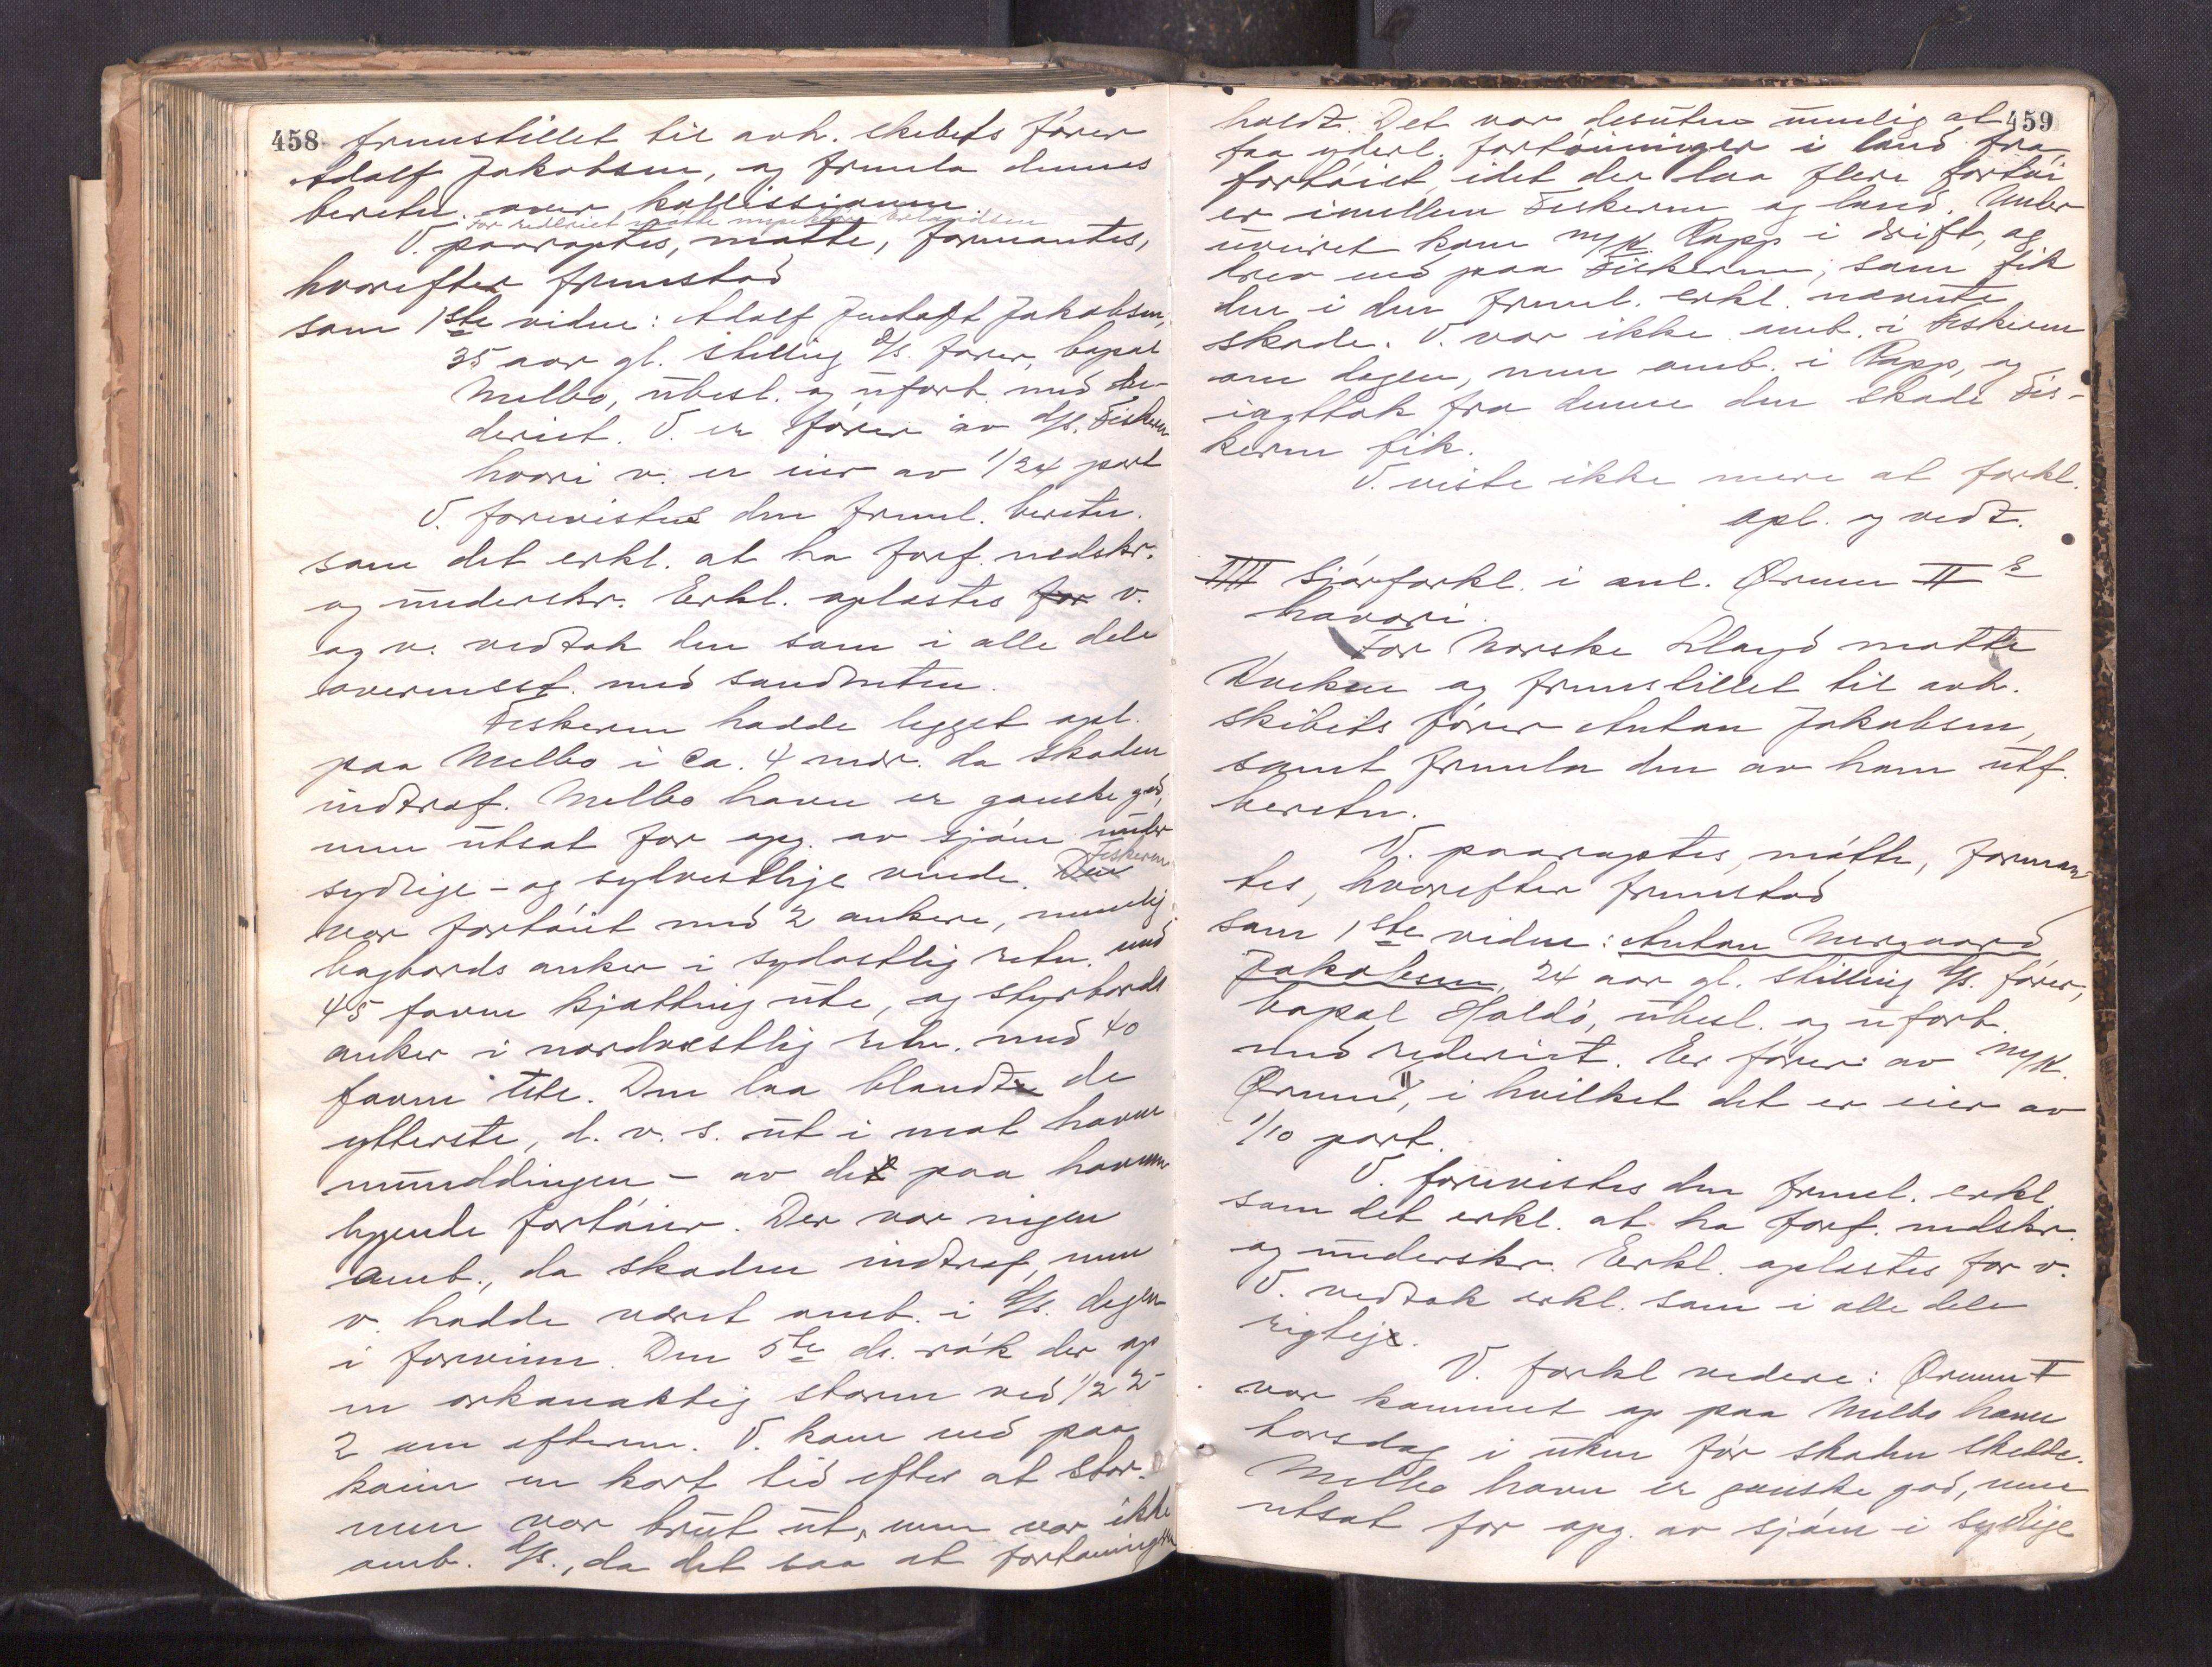 458 fremstillet til avh. skibets fører
Adolf Jakobsen, og fremla dennes
beretn. over kollissionen.
For rederiet mötte inspektör Erlandsen
V. paaroptes, møtte, formantes,
hvorefter fremstod
som 1ste vidne: Adolf Jakobsen,
35 aar gl. stilling d/s. fører, bopæl
Melbo, ubesl. og uforb. med re-
deriet. V. er fører av d/s. Fiskeren
hvori v. er eier av 1/24 part
V. forevistes den freml. beretn.
som det erkl. at ha forf. nedskr.
og underskr. Erkl. oplæstes for v.
og v. vedtok den som i alle dele
overensst. med sandheten.
Fiskeren hadde ligget opl.
paa Melbo i ca. 4 mdr. da skaden
indtraf. Melbo havn er ganske god,
men utsat for opg. av sjøen under
sydlige- og sydvestlige vinde. Den Fiskeren
var fortøiet med 2 ankere, nemlig
bagbords anker i sydostlig retn. med
45 favne kjætting ute, og styrbords
anker i nordvestlig retn. med 40
favne ute. Den laa blandt de
ytterste, d. v. s. ut i mot havne
mundingen - av de paa havnen
liggende fartøier. Der var ingen
omb., da skaden indtraf, men
v. hadde været omb. i d/s. dagen
i forveien. Den 5te ds. røk der op
en orkanaktig storm ved 1/2 2-
2 em efterm. V. kom ned paa
kaien en kort tid efter at stor-
men var brut ut, men var ikke
omb. d/s., da det saa at fortøiningen
459
holdt. Det var desuten umulig at
faa yderl. fortøininger i land fra
fartøiet, idet der laa flere fartøi
er imellem Fiskeren og land. Under
uveiret kom m/k Rapp i drift, og
drev ned paa Fiskeren, som fik
den i den freml. erkl. nævnte
skade. V. var ikke omb. i Fiskeren
om dagen, men omb. i Rapp, og
iagttok fra denne den skade Fis-
keren fik.
V. viste ikke mere at forkl.
Opl. og vedt.
IIII Sjøforkl. i anl. Ørnen II s
havari.
For Norske Lloyd møtte
og fremstillet til avh.
skibets fører Anton Jakobsen,
samt fremla den av ham utf.
beretn.
V. paaroptes, møtte, forman-
tes, hvorefter fremstod
som 1ste vidne: Anton Mergaard
Jakobsen, 24 aar gl. stilling d/s. fører,
bopæl Haldö, ubesl. og uforb.
med rederiet. Er fører av m/k.
Ørnen II, i hvilket det er eier av
1/10 part.
V. forevistes den freml. erkl.
som det erkl. at ha forf. nedskr.
og underskr. Erkl. oplæstes for v.
V. vedtok erkl. som i alle dele
rigtig.
V. forkl videre: Ørnen II
var kommet op paa Melbo havn
torsdag i uken før skaden skedde.
Melbo havn er ganske god, men
utsat for opg. av sjøen i sydlige